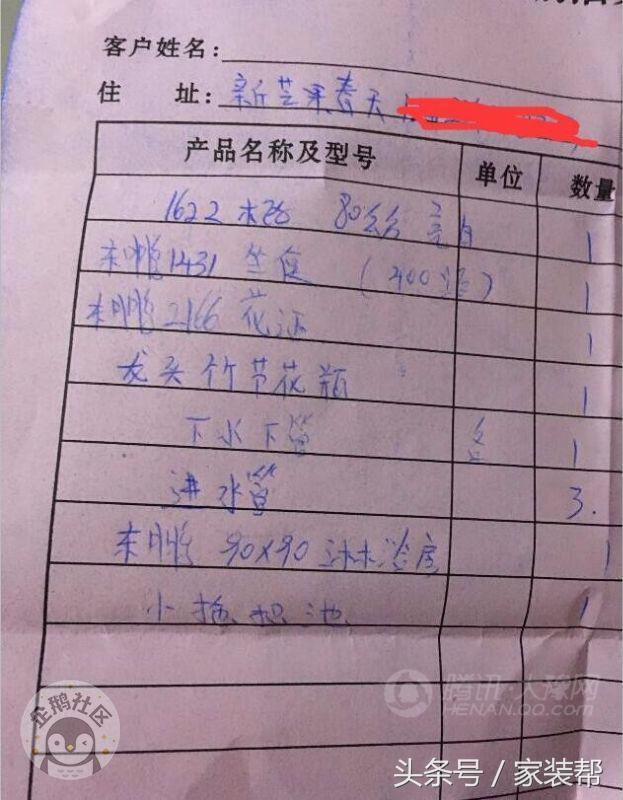 客户姓名:
住 址: 新芒果春天
产品名称及型号 单位 数量
1622 80公分 亮白 1
东鹏1431 坐便 (400距) 1
东鹏2166 花洒 1
龙头竹节花瓶 1
下水下管 各 1
进水管 3.
东鹏 90X90 淋浴房 1
小拖把池 1
企鹅社区
腾讯·大豫网
HENAN.QQ.COM
头条号 / 家装帮